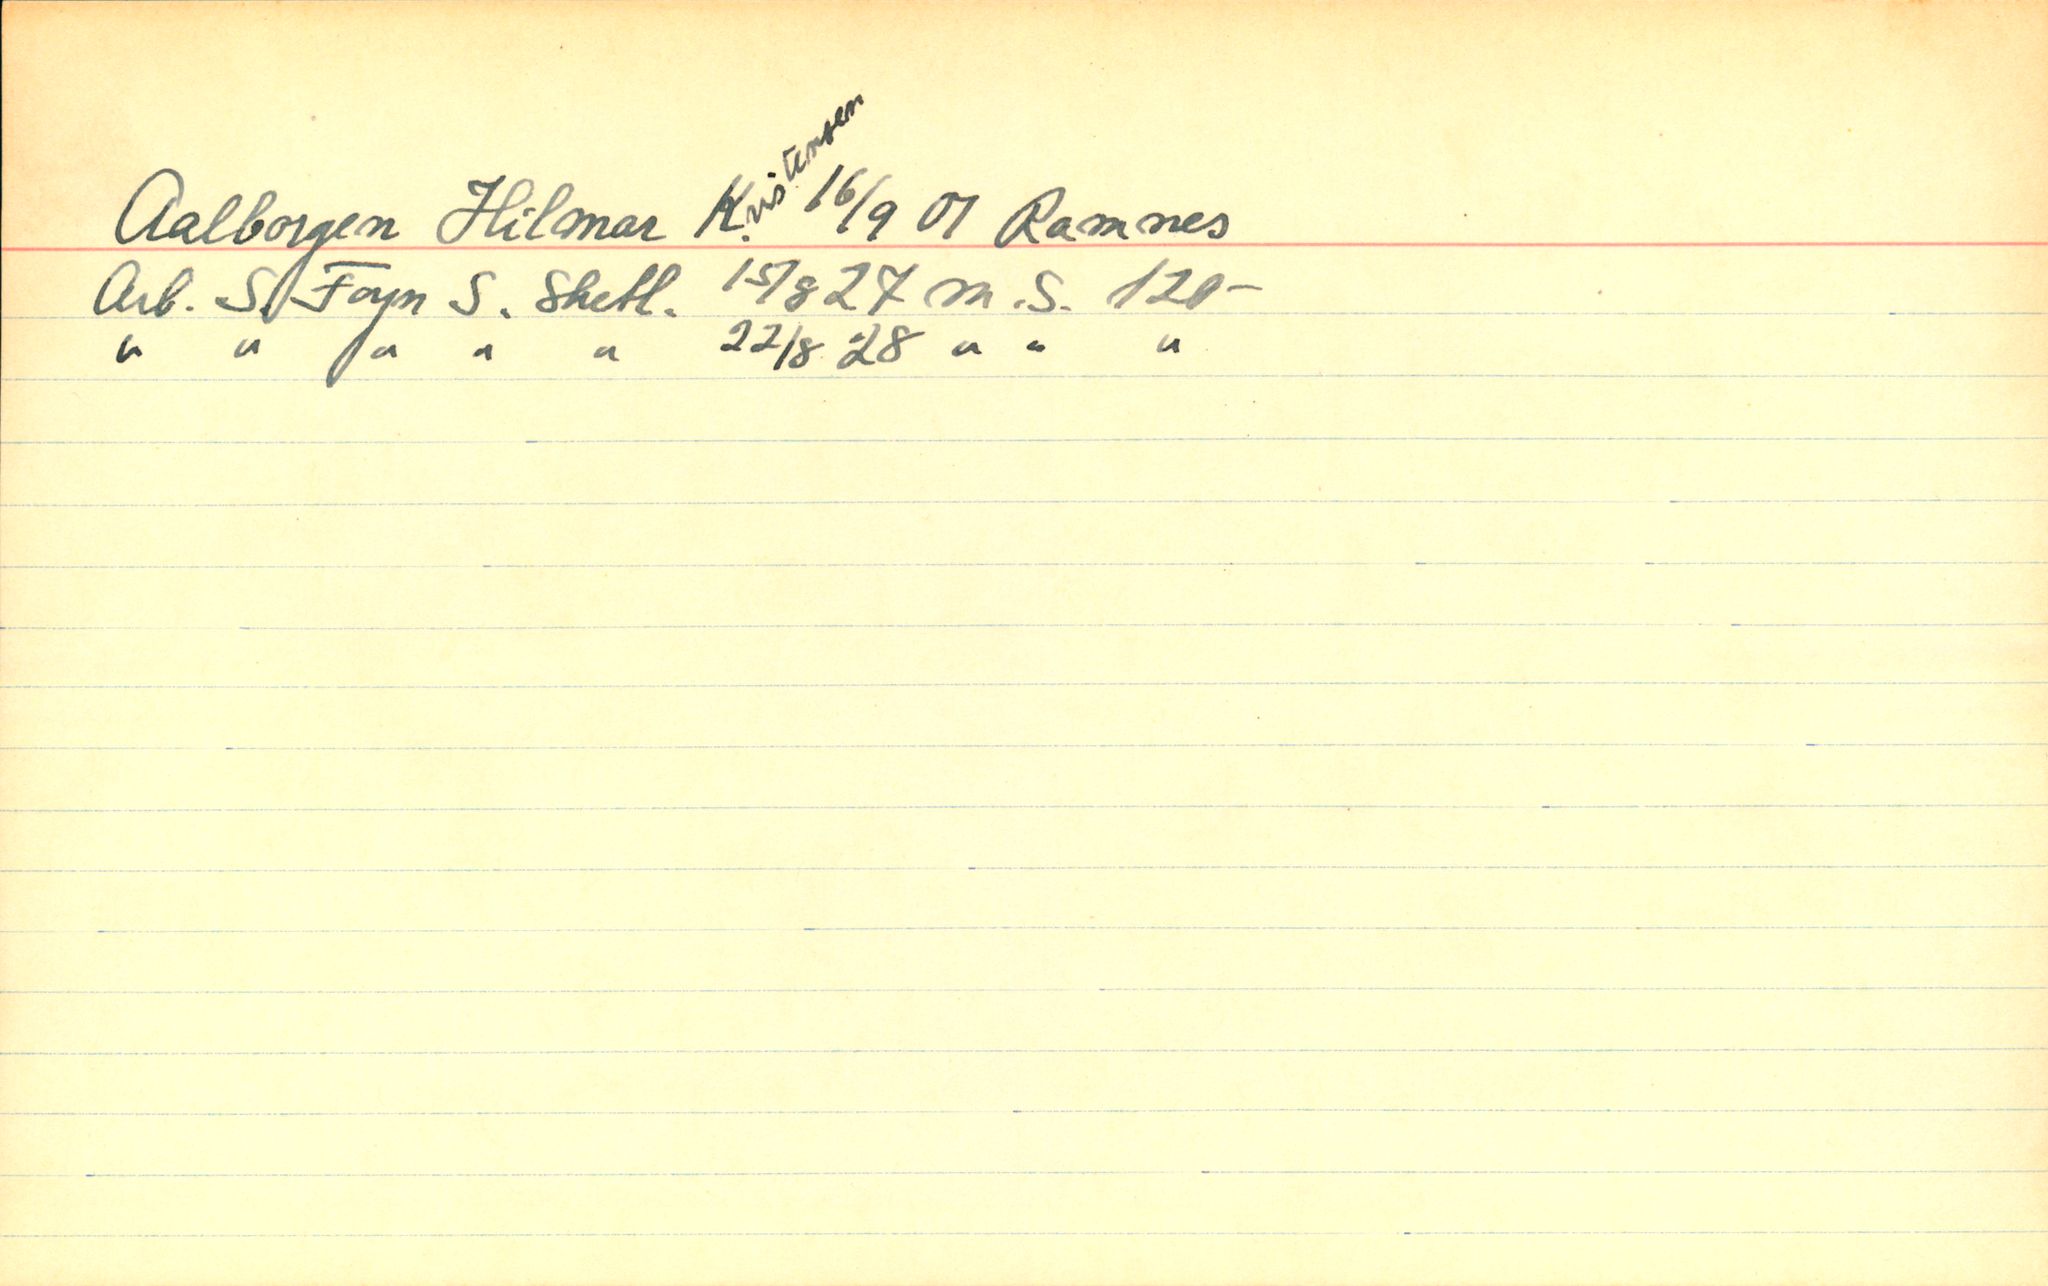 Aalborgen Hilmar Kristensen 16/9 01 Ramnes
Arb. S. Foyn S. Shetl. 15/8 27 m.S. 120-
" " " " " 22/8 28 " " "